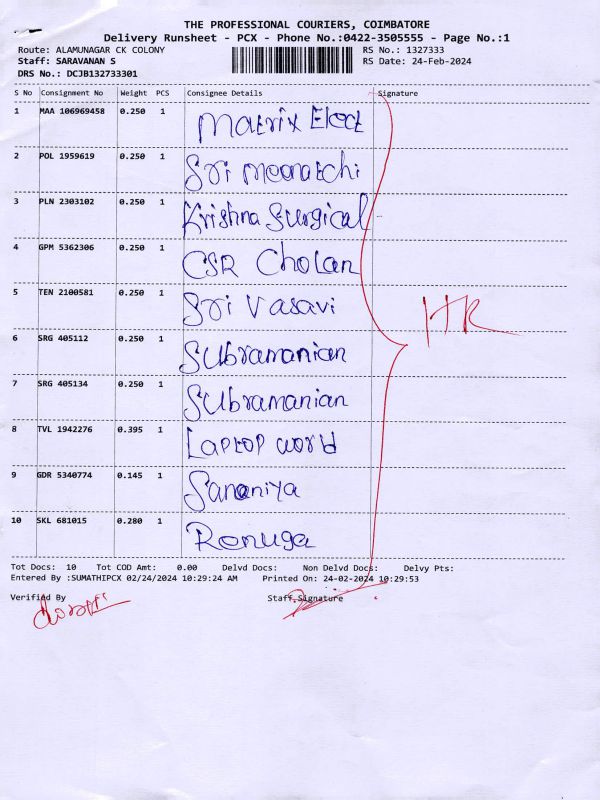 THE PROFESSIONAL COURIERS, COIMBATORE
Delivery Runsheet - PCX - Phone No.:0422-3505555 - Page No.:1
Route: ALAMUNAGAR CK COLONY RS No.: 1327333
Staff: SARAVANAN S RS Date: 24-Feb-2024
DRS No.: DCJB132733301
S No Consignment No Weight PCS Consignee Details Signature
1 MAA 106969458 0.250 1 Matrix Elect
2 POL 1959619 0.250 1 Sri Meenatchi
3 PLN 2303102 0.250 1 Krishna Surgical
4 GPM 5362306 0.250 1 CSR Cholan
5 TEN 2100581 0.250 1 Sri Vasavi
HR
6 SRG 405112 0.250 1 Subramanian
7 SRG 405134 0.250 1 Subramanian
8 TVL 1942276 0.395 1 Laptop world
9 GDR 5340774 0.145 1 Sananiya
10 SKL 681015 0.280 1 Renuga
Tot Docs: 10 Tot COD Amt: 0.00 Delvd Docs: Non Delvd Docs: Delvy Pts:
Entered By :SUMATHIPCX 02/24/2024 10:29:24 AM Printed On: 24-02-2024 10:29:53
Verified By Staff Signature